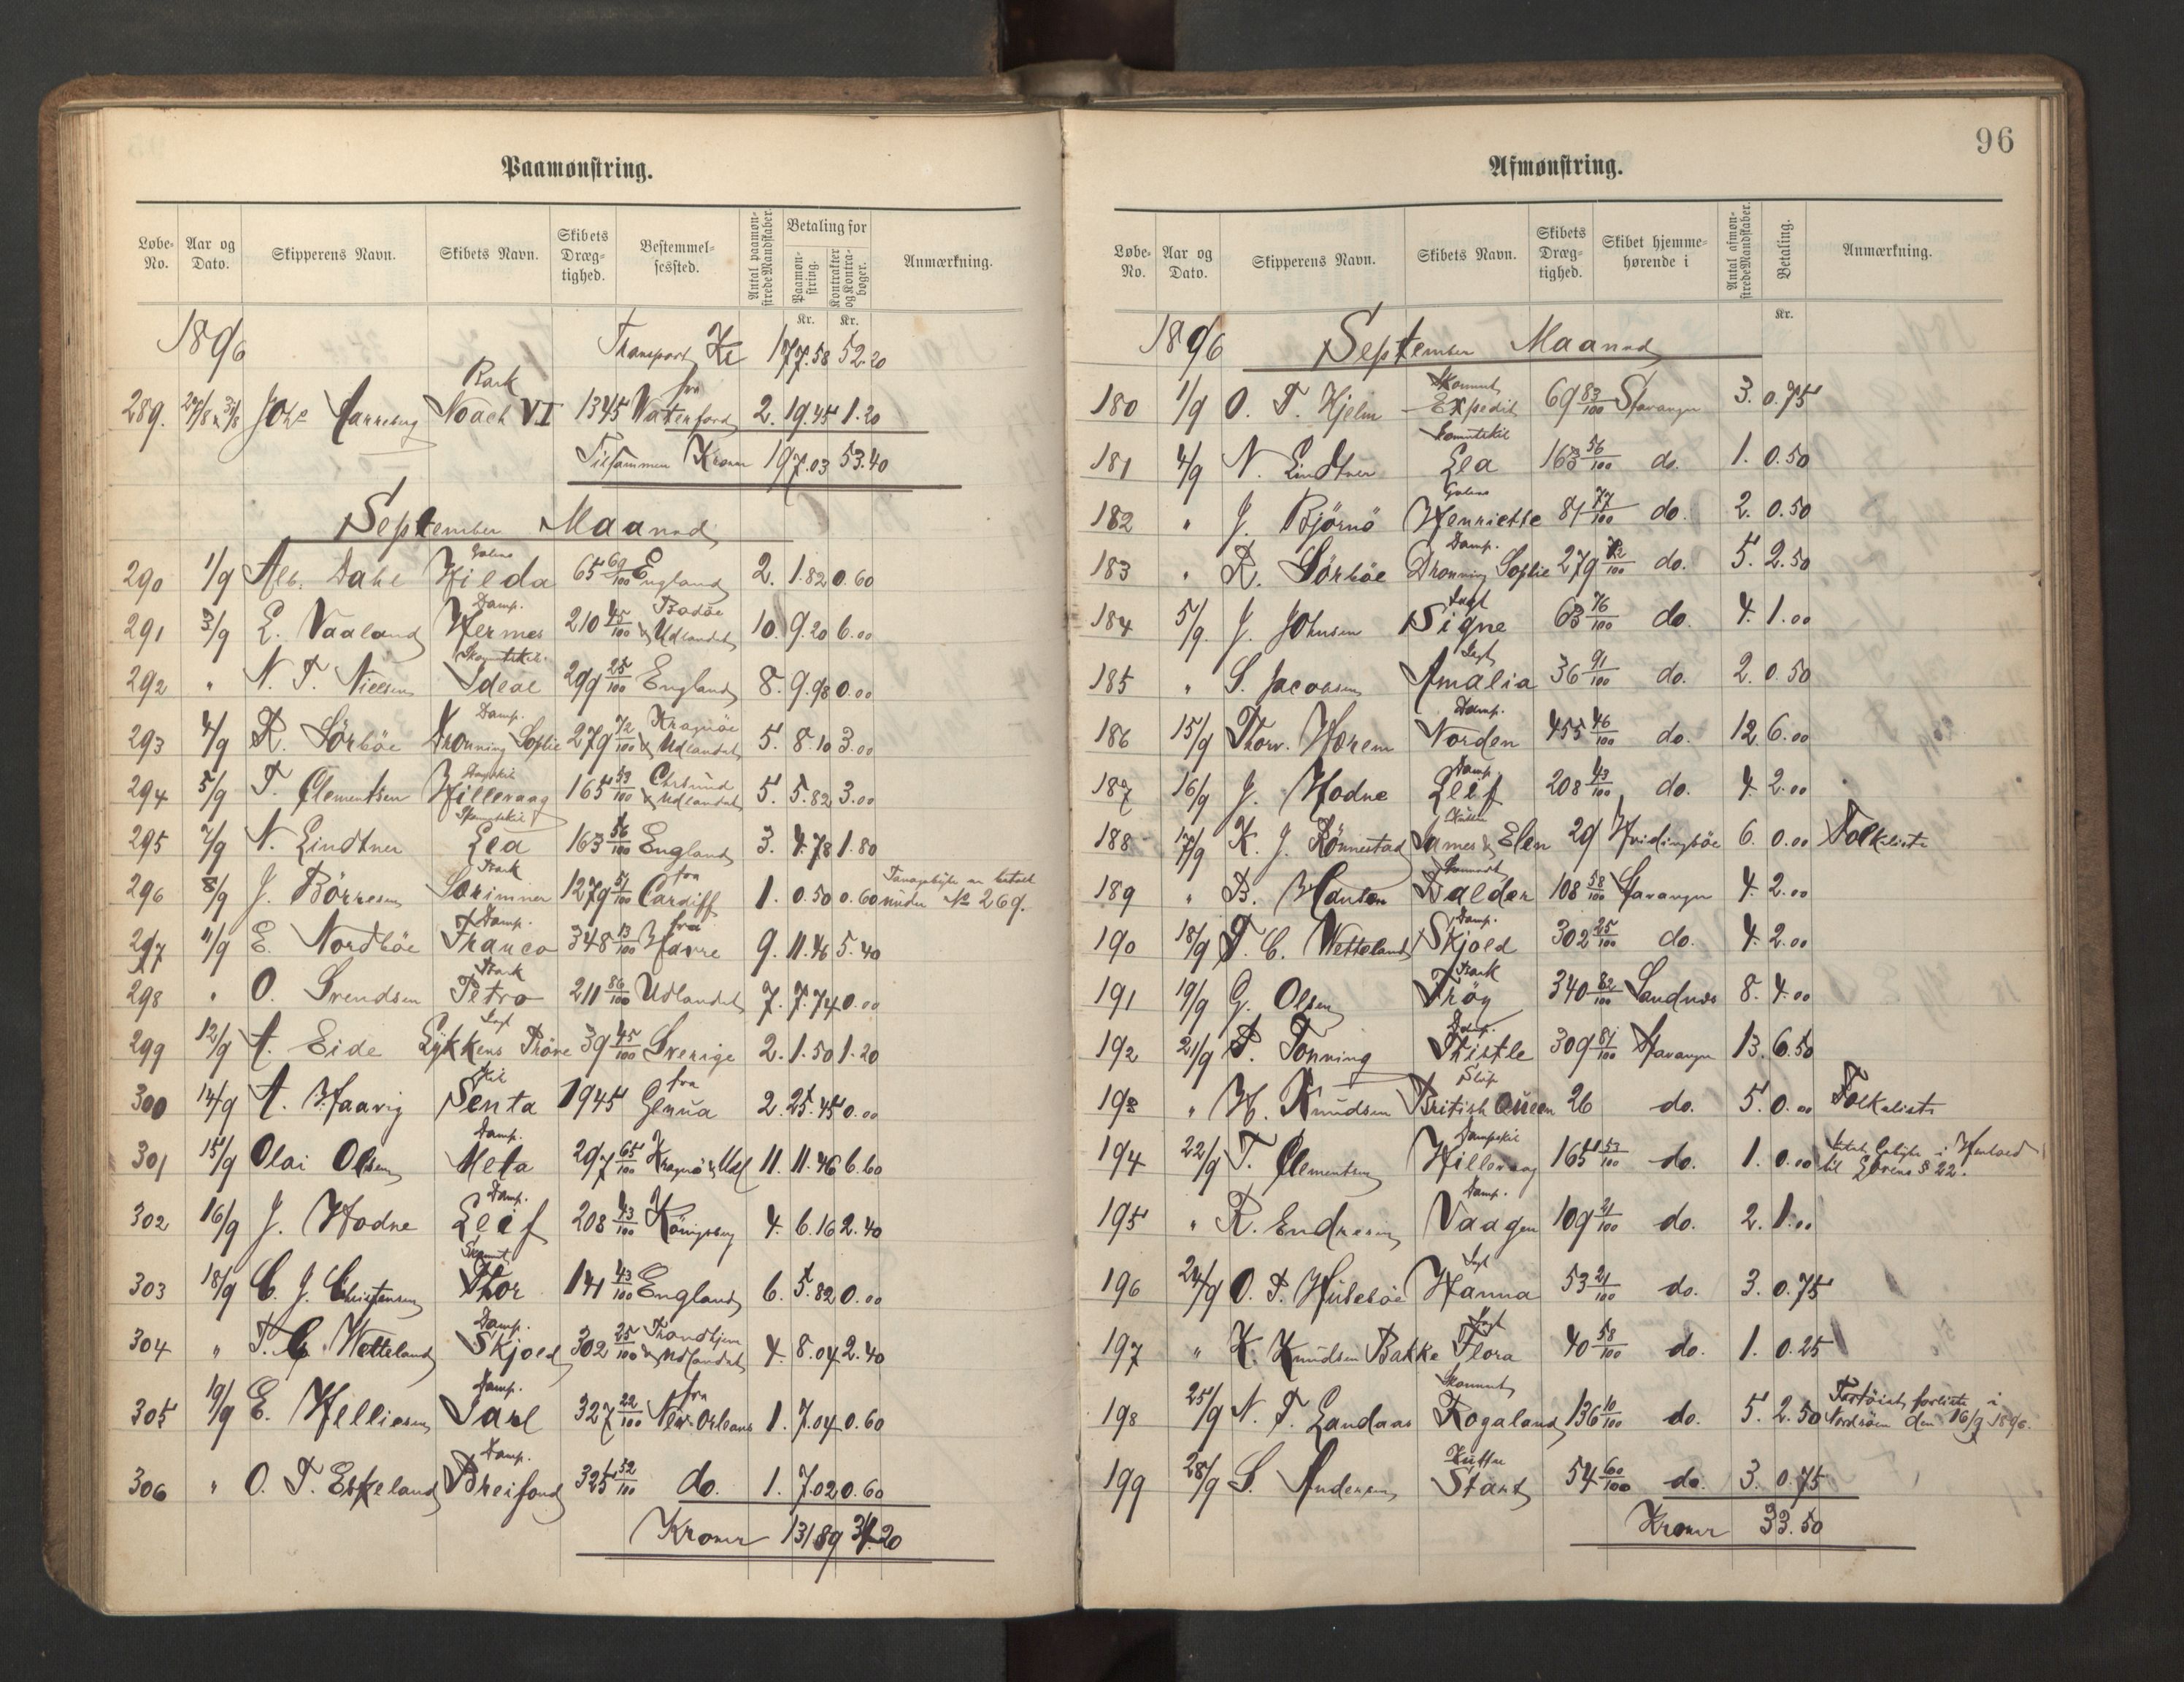 Paamønstring.
Løbe-No. Aar og Dato. Skipperens Navn. Skibets Navn. Skibets Dræg-tighed. Bestemmel-sessted. Antal paamøn-strede Mandskaber. Betaling for Paamøn-string. Kontrakter og Kontra-bøger. Anmærkning.
Kr. Kr.
1896 Transport Kr 177.58 52.20
289. 27/8 & 31/8 Johs Hanneberg Bark Noach VI 1345 fra Waterford 2. 19.45 1.20
Tilsammen Kroner 197.03 53.40
September Maaned
290 1/9 Alb. Dahl Galeas Hilda 65 69/100 England 2. 1.82 0.60
291 3/9 E. Vaaland Damp. Hermes 210 45/100 Bodöe & Udlandet 10. 9.20 6.00
292 " N. T. Nielsen Skonnertskib Ideal 299 25/100 England 8. 9.98 0.00
293 4/9 R. Sörböe Damp. Dronning Sophie 279 72/100 Kragerøe & Udlandet 5. 8.10 3.00
294 5/9 T. Clementsen Dampskib Hilleraag 165 53/100 Chrsund & Udlandet 5. 5.82 3.00
295 7/9 N. Lindtner Skonnertskib Lea 163 56/100 England 3. 4.78 1.80
296 8/9 J. Börresen Bark Sörimner 1279 51/100 fra Cardiff 1. 0.50 0.60 er betalt under No 269.
297 11/9 E. Nordböe Damp. Franco 348 13/100 fra Havre 9. 11.46 5.40
298 " O. Svendsen Bark Petro 211 86/100 Udlandet 7. 7.74 0.00
299 12/9 A. Eide Jagt Lykkens Pröve 39 45/100 Sverige 2. 1.50 1.20
300 14/9 A. Haavig Skib Senta 1945 fra Genua 2. 25.45 0.00
301 15/9 Olai Olsen Damp. Meta 297 65/100 Kragerø & Udl 11. 11.46 6.60
302 16/9 J. Hodne Damp. Leif 208 43/100 Königsberg 4. 6.16 2.40
303 18/9 C. J. Christensen Skonnert Thor 141 43/100 England 6. 5.82 0.00
304 " T. C. Wetteland Damp. Skjold 302 25/100 Trondhjem & Udlandet 4. 8.04 2.40
305 19/9 E. Helliesen Damp. Jarl 327 22/100 fra New-Orleans 1. 7.04 0.60
306 " O. T. Eskeland Damp. Breifond 325 52/100 do. 1. 7.02 0.60
Kroner 131 89 34.20
96
Afmønstring.
Løbe-No. Aar og Dato. Skipperens Navn. Skibets Navn. Skibets Dræg-tighed. Skibet hjemme-hørende i Antal afmøn-strede Mandskaber. Betaling. Anmærkning.
Kr.
1896 September Maaned
180 1/9 O. T. Hjelm Skonnert Expedit 69 83/100 Stavanger 3. 0.75
181 4/9 N. Lindtner Skonnertskib Lea 163 56/100 do. 1. 0.50
182 " J. Björnö Galeas Henriette 81 77/100 do. 2. 0.50
183 " R. Sörböe Damp. Dronning Sophie 279 72/100 do. 5. 2.50
184 5/9. J. Johnsen Jagt Signe 63 76/100 do. 4. 1.00
185 " S. Jacobsen Jagt Amalia 36 91/100 do. 2. 0.50
186 15/9 Thorv. Horem Damp. Norden 455 46/100 do. 12. 6.00
187 16/9 J. Hodne Damp Leif 208 43/100 do. 4. 2.00
188 17/9 K. J. Rönnestad Kutter James & Elen 29 Hvidingsöe 6. 0.00 Folkeliste
189 " B. Hanson Skonnert Balder 108 58/100 Stavanger 4. 2.00
190 18/9 T. C. Wetteland Damp. Skjold 302 25/100 do. 4. 2.00
191 19/9 G. Olsen Bark Fröy 340 82/100 Sandnæs 8. 4.00
192 21/9 P. Tonning Damp. Thistle 309 81/100 Stavanger 13. 6.50
193 " H. Knudsen Slup British Queen 26 do. 5. 0.00 Folkeliste
194 22/9 T. Clementsen Dampskib Hilleraag 165 53/100 do. 1. 0.00 i Henhold til Lovens § 22.
195 " R. Endresen Damp. Vaagen 109 21/100 do. 2. 1.00
196 24/9 O. P. Huseböe Jagt Hanna 53 21/100 do. 3. 0.75
197 " K. Knudsen Bakke Jagt Flora 40 58/100 do. 1. 0.25
198 25/9 N. T. Landaas Skonnert Rogaland 136 10/100 do. 5. 2.50 Fartöiet forliste i Nordsöen den 16/9 1896.
199 28/9 S. Andersen Kutter Start 54 60/100 do. 3. 0.75
Kroner 33.50